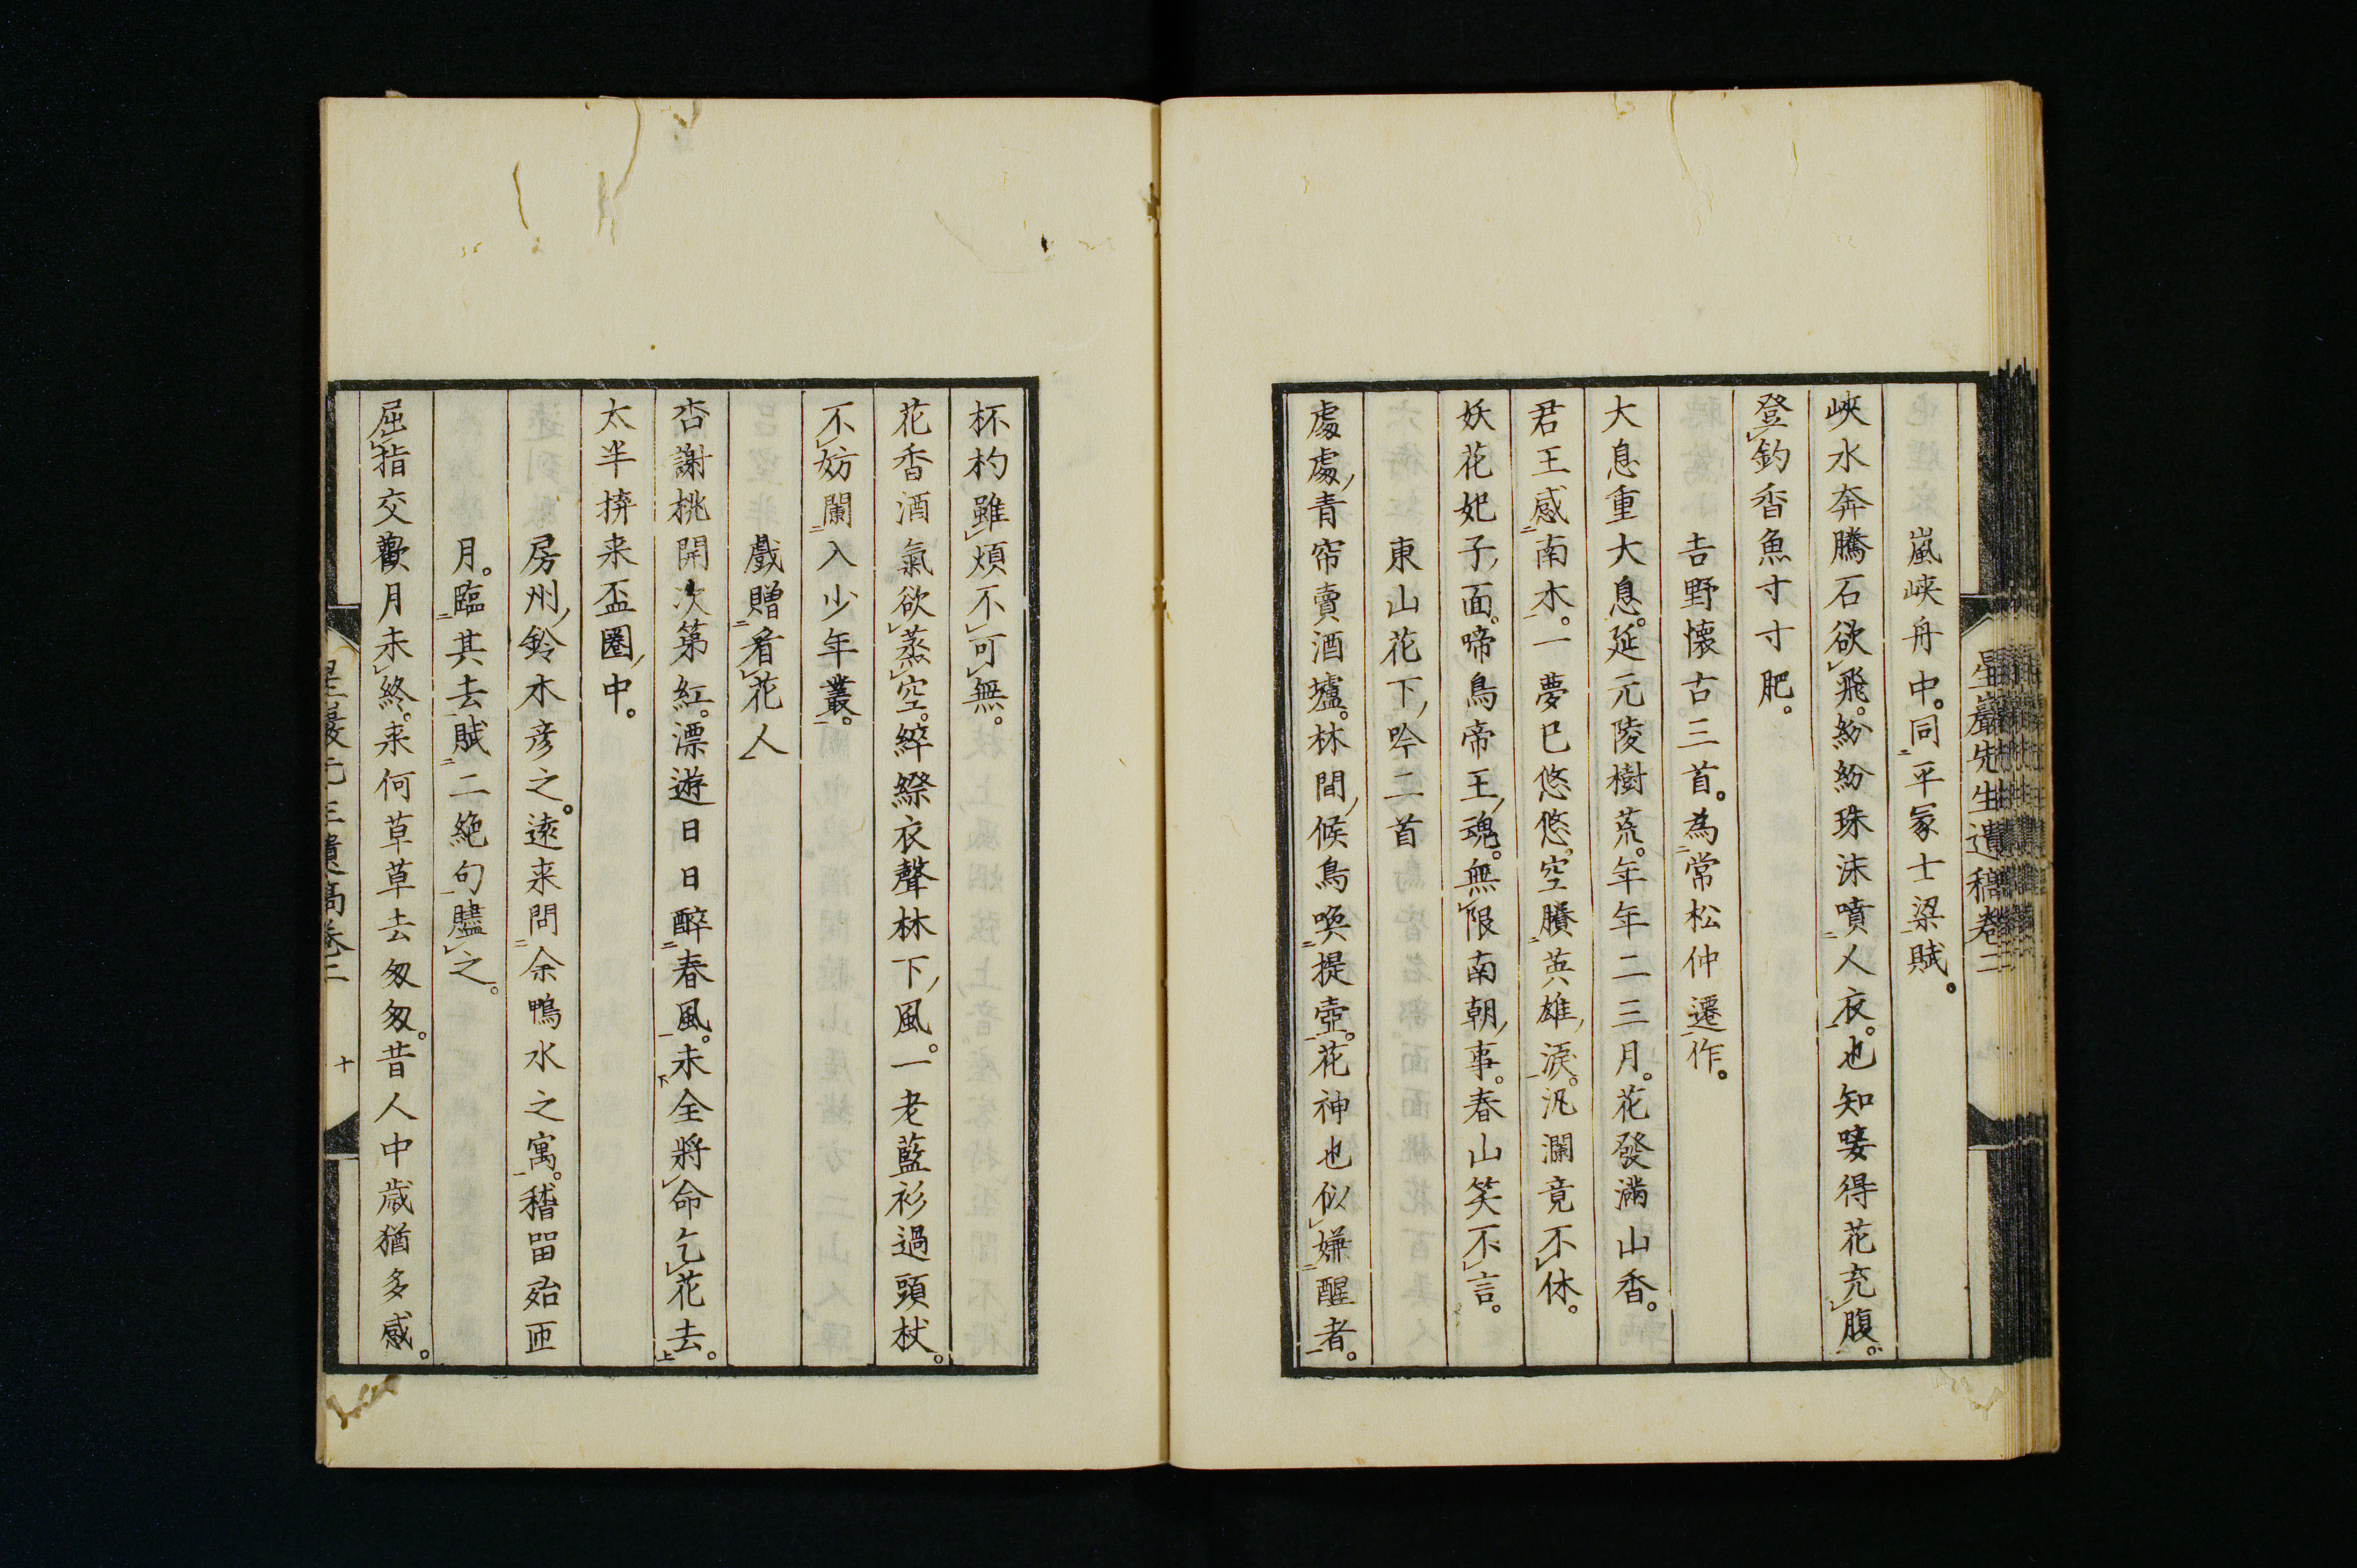 星巖先生遺稿卷二
嵐峽舟中。同平冢士梁賦。
峽水奔騰石欲飛。紛紛珠沫噴人衣。也知唼得花充腹。
登釣香魚寸寸肥。
吉野懷古三首。為常松仲遷作。
大息重大息。延元陵樹荒。年年二三月。花發滿山香。
君王感南木。一夢已悠悠。空賸英雄淚。汎瀾竟不休。
妖花妃子面。啼鳥帝王魂。無限南朝事。春山笑不言。
東山花下吟二首
處處青帘賣酒壚。林間候鳥喚提壺。花神也似嫌醒者。
杯杓雖煩不可無。
花香酒氣欲蒸空。綷縩衣聲林下風。一老藍衫過頭杖。
不妨闌入少年叢。
戲贈看花人
杏謝桃開次第紅。漂遊日日醉春風。未全將命乞花去。
太半擠来盃圈中。
房州鈴木彦之。遠来問余鴨水之寓。稽畱殆匝
月。臨其去賦二絶句贐之。
屈指交歡月未終。来何草草去匆匆。昔人中歳猶多感。
星巖先生遺稿卷二 十